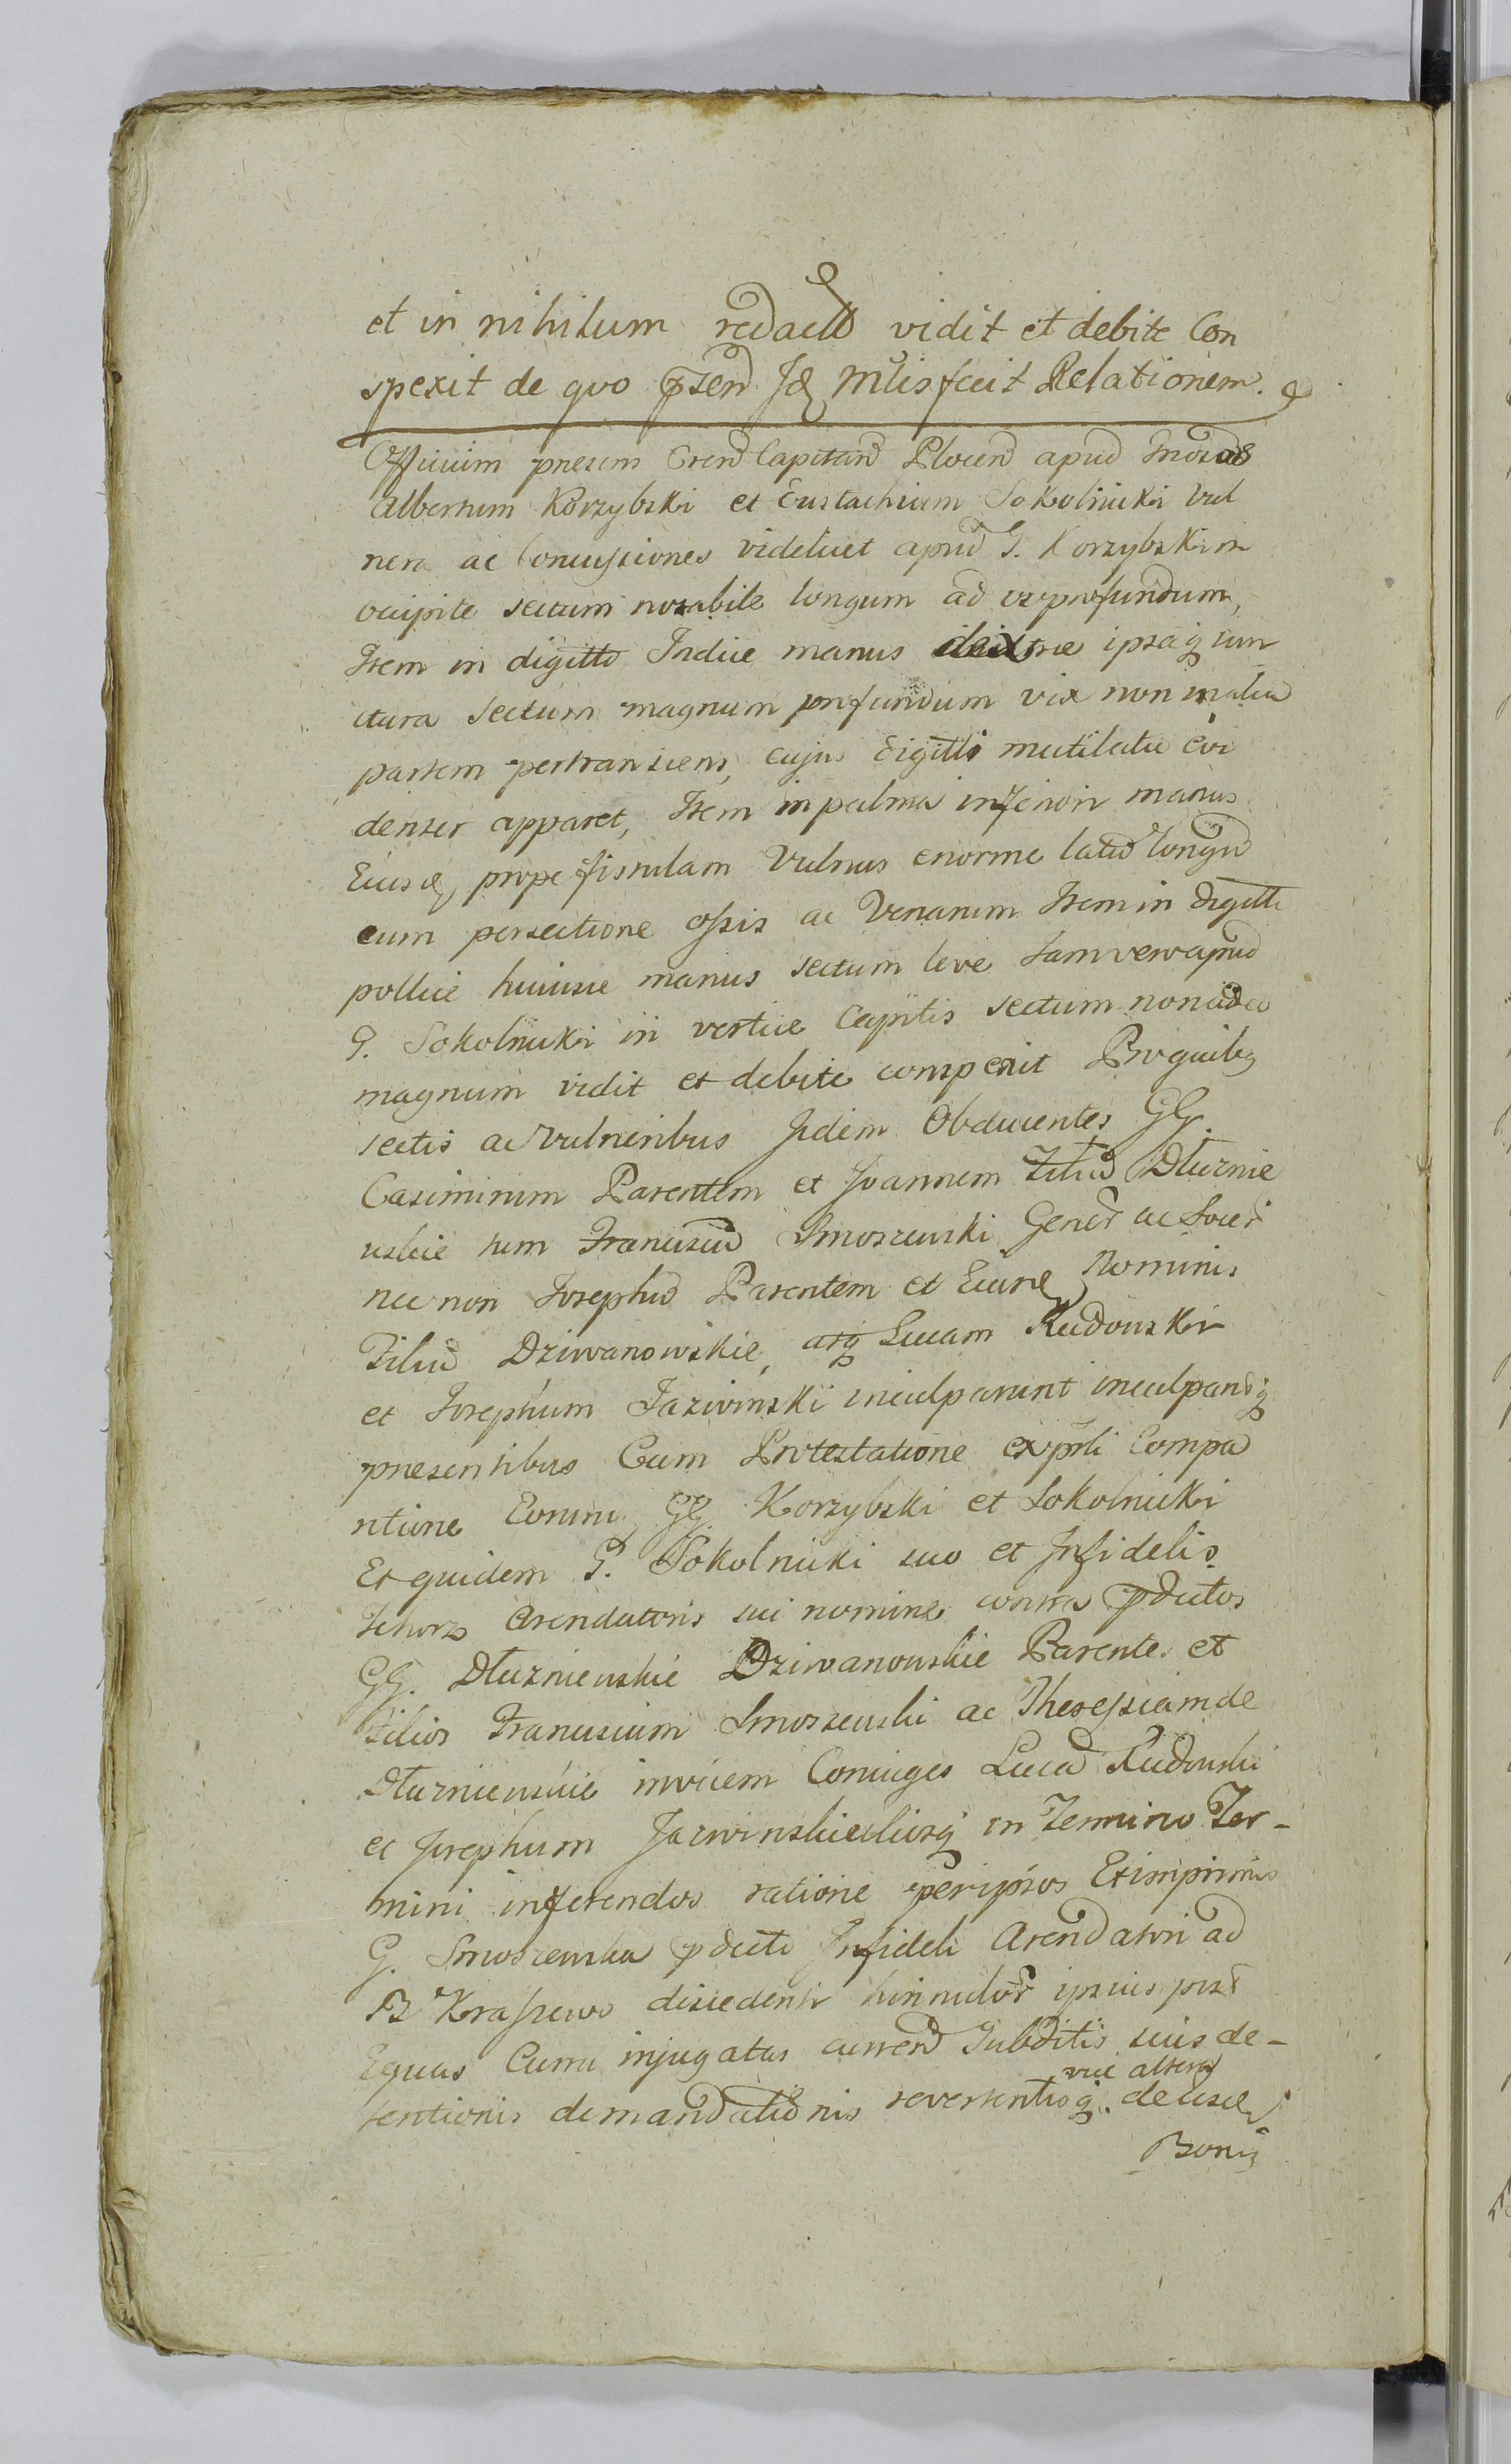 et in nihilum redactũ vidit et debite Con
spexit de quo p̃sen Id M̃lis fecit Relationem.
Officium presens Cren Capitan Plocen apud Gnosos
Albertum Korzybski et Eustachium Sokolnicki vul
nera ac Concussiones videlicet apud G. Korzybski in
occipite sectum notabile longum ad usq profundum,
Item in digitto Indice manus dextrae ipsaq iun
ctura sectum magnum profundum vix non in aliã
partem pertransiens, cujus digitti mutilatio evi
denter apparet, Item in palma inferiori manus
Eiusd prope fistulam Vulnus enorme latũ longũ
cum persectione ossis ac Venarum Item in digitti
pollice huiusce manus sectum leve Iam vero apud
G. Sokolnicki in vertice Capitis sectum non adeo
magnum vidit et debite conspexit Pro quibg
sectis ac Vulneribus Iidem Obducentes GG.
Casimirum Parentem et Joannem Filiũ Dłuznie
wskie tum Franciscũ Smoszewski Generũ ac Socerũ
nec non Josephũ Parentem et Eiusd Nominis
Filiũ Dziwanowskie, atq Lucam Rudowski
et Josephum Jazwinski inculparunt inculpandq
presentibus Cum Protestatione ex p̃nli Compa
ritione Eorund GG. Korzybski et Sokolnicki
Et quidem G. Sokolnicki suo et Infidelis
Arendatoris sui nomine contra p̃dictos
GG. Dłuzniewskie Dziwanowskie Parentes et
Filios Franciscum Smoszewski ac Theressiam de
Dłuzniewskie invicem Coniuges Lucã Rudowski
et Josephum Jazwinskie in Termino Ter-
mini inferendos ratione per ipsos Et imprimis
G. Smoszewska p̃dicti Infideli Arendatori ad
B Kraszewo discedenti ipsius
Equas Curru injugatas currend Subditis suis de-
tentionis demandationis revertentisq. vice altera de iisd
Bonis